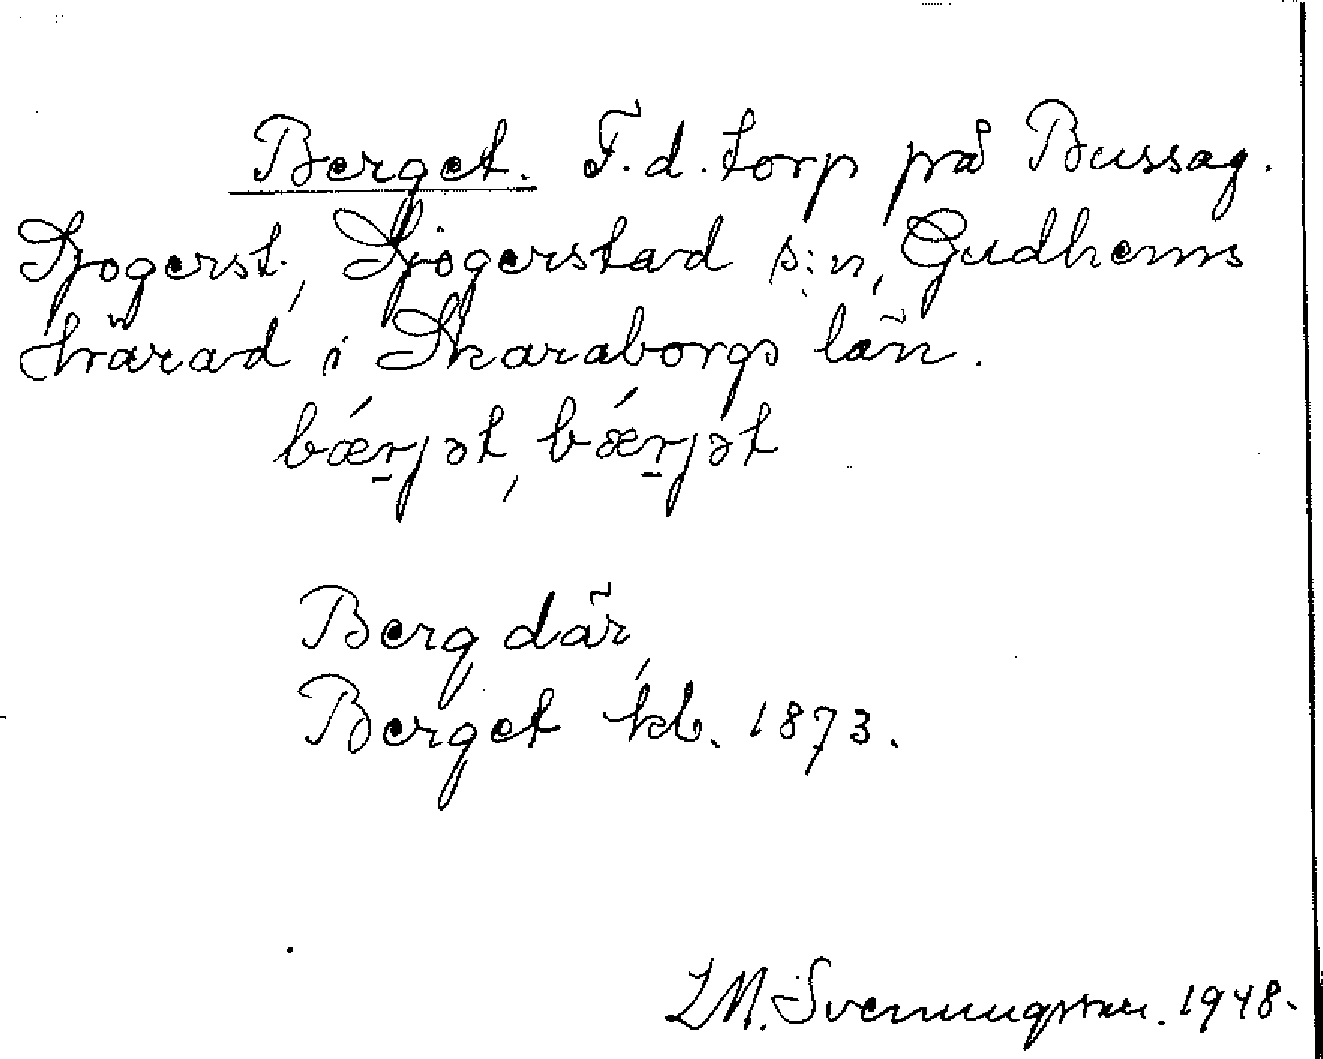 Berget. F.d. torp på Bussag.
Sjogerst., Sjögerstad s:n, Gudhems
härad i Skaraborgs län.
bǽr̲jət, bǽr̲jət
Berg där,
Berget kb. 1873.
I.M. Svenungsson. 1948.